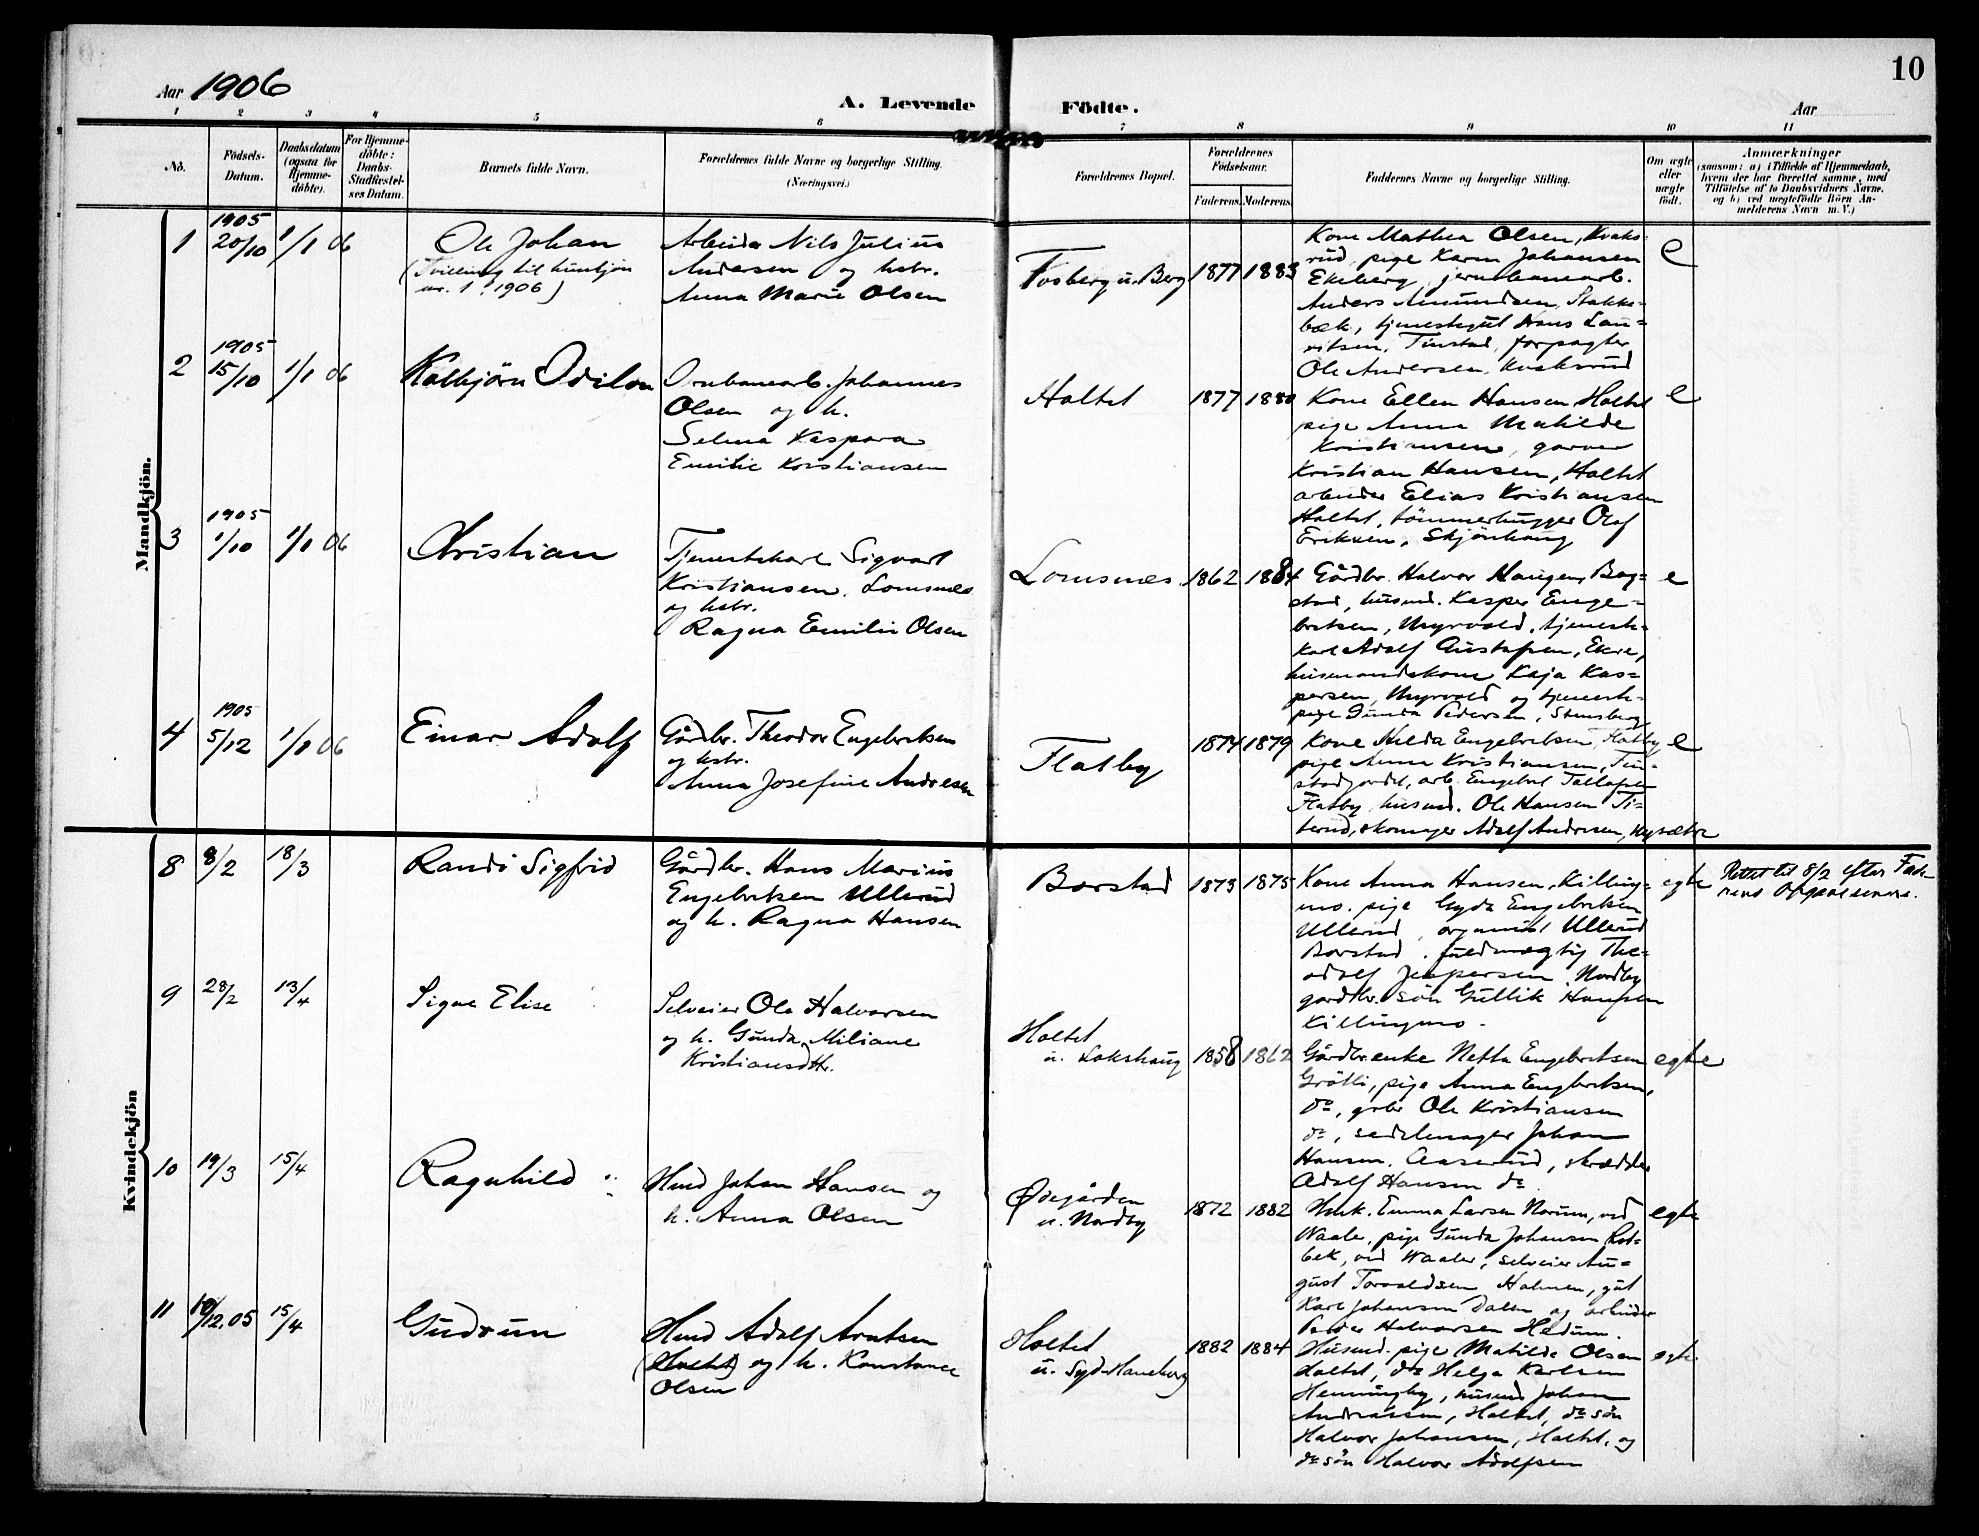 10
Aar 1906
A. Levende Födte.
Aar
1 2 3 4 5 6 7 8 9 10 11
No.
Födsels-
Datum.
Daabsdatum
(ogsaa for
Hjemme-
döbte).
For Hjemme-
döbte:
Daabs-
Stadfæstel-
ses Datum.
Barnets fulde Navn.
Forældrenes fulde Navne og borgerlige Stilling.
(Næringsvei.)
Forældrenes Bopæl.
Forældrenes
Födselsaar.
Faderens. Moderens.
Faddernes Navne og borgerlige Stilling.
Om ægte
eller
uægte
født.
Anmærkninger
(saasom: a) i Tilfælde af Hjemmedaab,
hvem der har forrettet samme, med
Tilføielse af to Daabsvidners Navne,
og b) ved uægtefödte Börn An-
melderens Navn m. V.)
Mandkjön.
1
1905
20/10
1/1 06
Ole Johan
(Tvilling til kvinkjön
nr. 1. 1906)
Arbeider Nils Julius
Andersen og hstr.
Anna Marie Olsen
Fosberg u. Berg
1877 1883
Kone Mathea Olsen, Kvaks-
rud, pige Karen Johansen
Ekeberg, jernbanearb.
Anders Amundsen, Stokke-
bæk, tjenestegut Hans Lau-
ritsen, Tinstad, forpagter
Ole Andersen, Kvaksrud
e
2
1905
15/10
1/1 06
Kolbjörn Odilon
Ornbanearb. Johannes
Olsen og h.
Selma Kaspara
Emilie Kristiansen
Holtet
1877 1880
Kone Ellen Hansen, Holtet
pige Anna Matilde
Kristiansen, garver
Kristian Hansen, Holtet
arbeider Elias Kristiansen
Holtet, tömmerhugger Olaf
Eriksen, Skjönhaug
e
3
1905
1/10
1/1 06
Kristian
Tjenestekarl Sigvart
Kristiansen, Lomsnes
og hstr.
Ragna Emilie Olsen
Lomsnes
1862 1884
Gårdbr. Halvor Haugen, Bog-
stad, husmd. Kasper Enge-
bretsen, Myrvold, tjeneste-
karl Adolf Gustafsen, Ekre,
husmandskone Kaja Kas-
persen, Myrvold og tjeneste-
pige Gunda Pedersen, Stensberg
e
4
1905
5/12
1/1 06
Einar Adolf
Gårdbr. Theodor Engebretsen
og hstr.
Anna Josefine Andresen
Flatby
1874 1879
Kone Hilda Engebretsen, Flatby
pige Anna Kristiansen, Tin-
stadjordet, arb. Engebret Tollefsen
Flatby, husmd. Ole Hansen Ti-
terud, skomager Adolf Andresen, Nysæter
e
Kvindekjön
8
8/2
18/3
Randi Sigfrid
Gårdbr. Hans Marius
Engebretsen Ullerud
og h. Ragna Hansen
Borstad
1873 1875
Kone Anna Hansen, Killing-
mo. pige Gyda Engebretsen
Ullerud, organist Ullerud
Borstad, fuldmægtig The-
odolf Jespersen, Nordby
gardbr. sön Gullik Hansen
Killingmo.
egte
Rettet til 8/2 efter Fade-
rens Opgivelse.
9
28/2
13/4
Signe Elise
Selveier Ole Halvorsen
og h. Gunda Miliane
Kristiansdtr.
Holtet
u. Lokshaug
1858 1862
Gårdbr.enke Netta Engebretsen
Gråtli, pige Anna Engebretsen,
do, gbr Ole Kristiansen
do, sadelmager Johan
Hansen, Aaserud, skrædder
Adolf Hansen do
egte
10
19/3
15/4
Ragnhild
Hmd Johan Hansen og
h. Anna Olsen
Ødegården
u. Nordby
1872 1882
Hmk. Emma Larsen Norum, ved
Waaler, pige Gunda Johansen Rod-
bek, ved Waaler, selveier Au-
gust Torvaldsen Holmen, gut
Karl Johansen Dalen og arbeider
Peder Halvorsen Hedum.
egte
11
10/12.05
15/4
Gudrun
Hmd Adolf Arntsen
(Holtet) og h. Konstance
Olsen
Holtet
u. Syd-Haneborg
1882 1884
Husmd. pige Matilde Olsen
Holtet, do Helga Karlsen
Henningby, husmd Johan
Andreassen, Holtet, do sön
Halvor Johansen, Holtet, og
do sön Halvor Adolfsen
egte